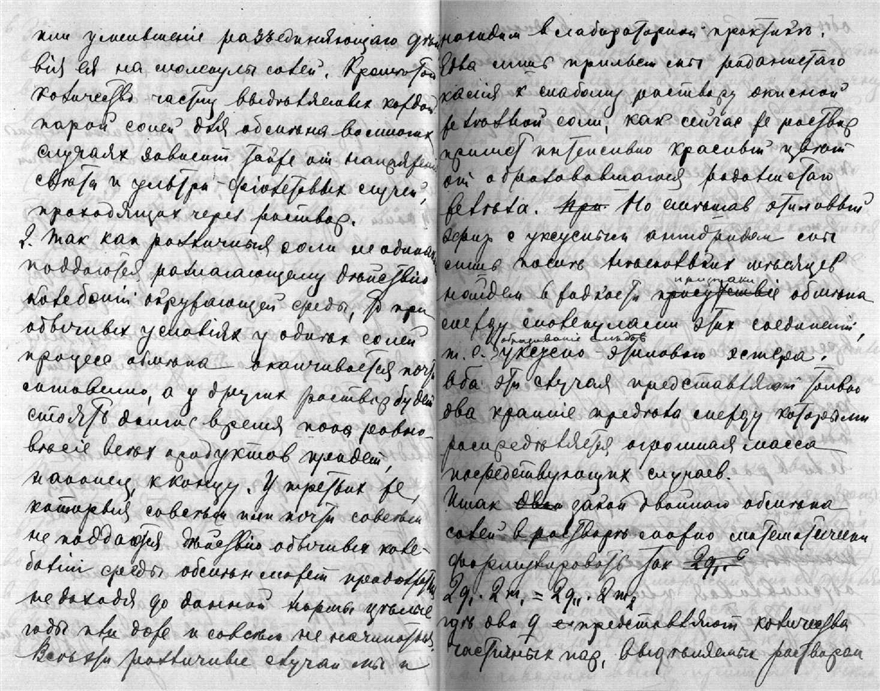 или уменьшеніе разъединяющаго дѣйст
вія ея на молекулы солей. Кромѣ того
количество частиц выдѣляемых каждой
парой солей для обмѣна во многих
случаях зависит также от напряженія
свѣта и ультра-фіолетовых лучей,
проходящих через раствор.
2. Так как различныя соли не одинаково
поддаются разлагающему дѣйствію
колебаній окружающей среды, то при
обычных условіях у одних солей
процесс обмѣна оканчивается почти
мгновенно, а у других раствор будет
стоять долгое время пока равно-
вѣсіе всѣх продуктов придет,
наконец, к концу. У третьих же,
которыя совсѣм или почти совсѣм
не поддаются дѣйствію обычных коле-
баній среды обмѣн может продолжаться
не доходя до данной нормы цѣлые
годы или даже и совсѣм не начинаться.
Всѣ эти различные случаи мы и
находим в лабораторной практикѣ.
Едва лишь прильем мы роданистаго
калія к слабому раствору окисной
желѣзной соли, как сейчас же раствор
примет интенсивно красный цвѣт
от образовавшагося роданистаго
желѣза. При Но смѣшав этиловый
эфир с уксусным ангидридом мы
лишь послѣ нѣскольких мѣсяцев
найдем в жидкости присутствіе признаки обмѣна
между молекулами этих соединеній,
т. е. образованіе уксусно-этиловаго эстера.
Оба эти случая представляют только
два крайніе предѣла между которыми
распредѣляется огромная масса
посредствующих случаев.
Итак закон двойнаго обмѣна
солей в растворѣ можно математически
формулировать так
2q₁ · 2m₁ = 2q₁₁ · 2m₂
гдѣ два q представляют количества
частичных пар, выдѣляемых раствором